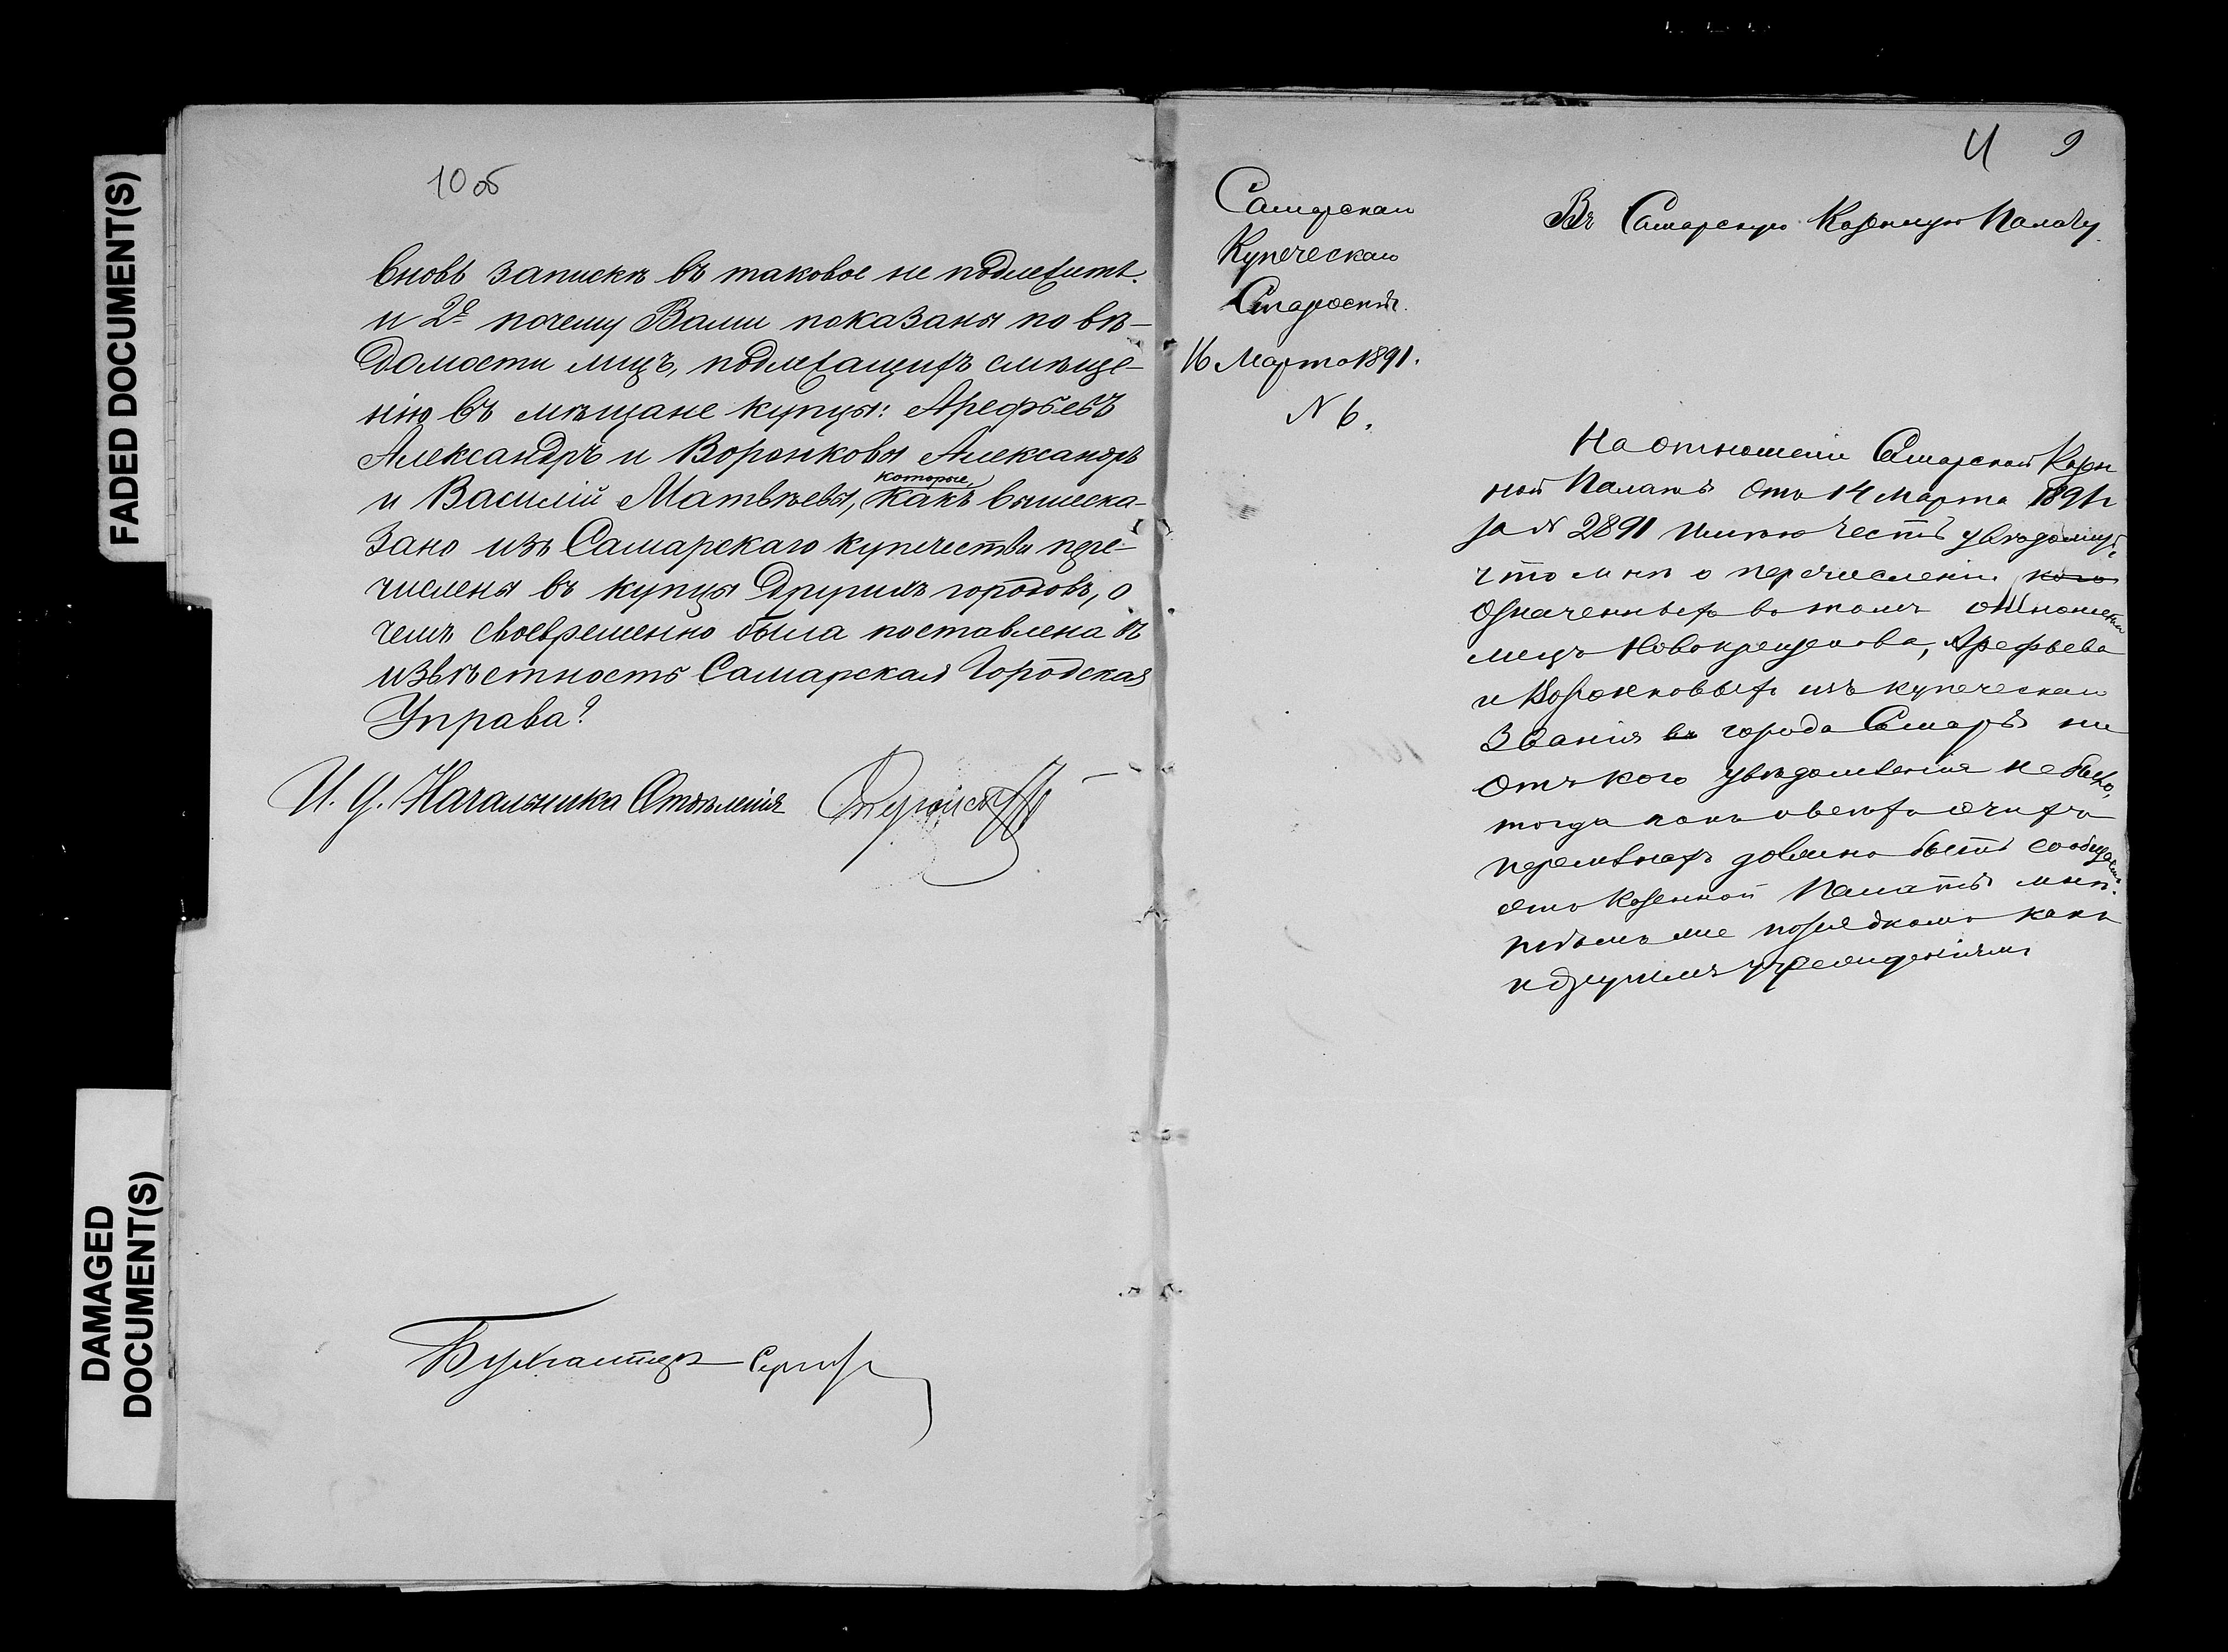 FADED DOCUMENT(S)
DAMAGED
DOCUMENT(S)
10 об
вновь запискѣ въ таковое не подлежитъ.
и 2е почему Вами показаны по вѣ-
домости лицъ, подлежащихъ смѣще-
нію въ мѣщане купцы: Арефьевъ
Александръ и Воронковы Александръ
которые,
и Василій Матвѣевы, какъ вышеска-
зано изъ Самарскаго купечества пере-
числены въ купцы другихъ городовъ, о
чемъ своевременно была поставлена въ
извѣстность Самарская Городская
Управа?
И. д. Начальника Отдѣленія
Бухгалтеръ
9
Самарскаго
Купеческаго
Старосты.
16 Марта 1891.
N 6.
Въ Самарскую Казенную Палату.
На отношеніе Самарской Казен
ной Палаты отъ 14 Марта 1891 г
за N 2891 имѣю честь увѣдомить,
что мнѣ о перечисленіи кого
означенныхъ въ томъ отношеніи
лицъ Новокрещенова, Арефьева
и Воронковыхъ изъ купеческаго
званія въ города Самары ни
отъ кого увѣдомленія не было,
тогда какъ о всехъ этихъ
перемѣнахъ должно быть сообщаемо
отъ Казенной Палаты мнѣ
тѣмъ же порядкомъ какъ
и другимъ учрежденіямъ